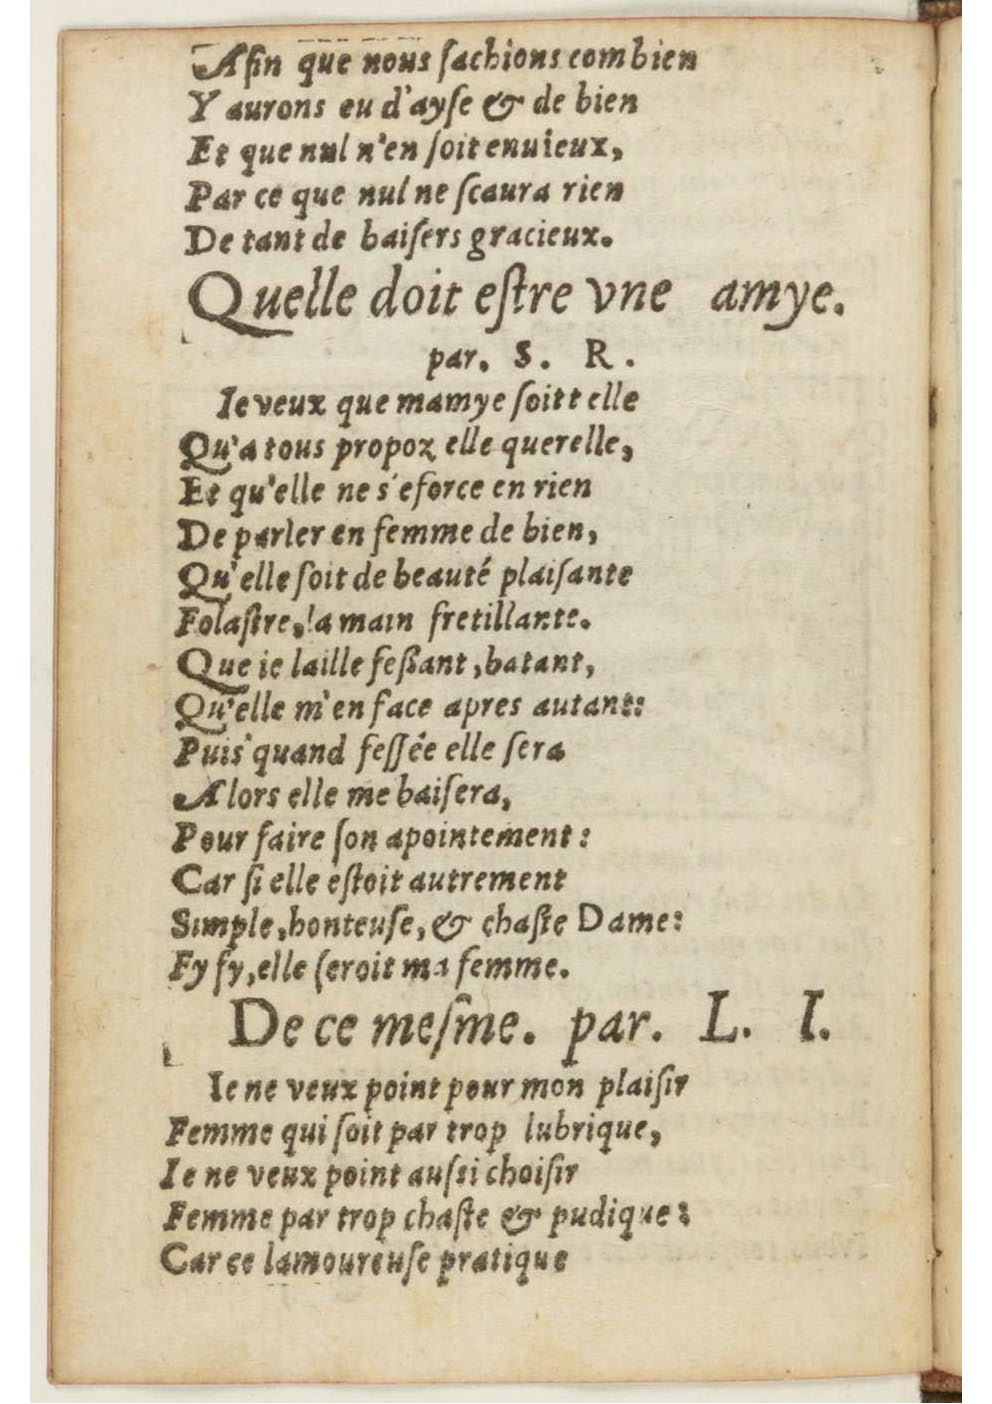 Afin que nous ſachions combien
Y aurons eu d'ayſe & de bien
Et que nul n'en ſoit enuieux,
Par ce que nul ne ſcaura rien
De tant de baiſers gracieux.
Quelle doit eſtre vne amye.
par. S. R.
Ie veux que mamye ſoit t elle
Qu'a tous propoz elle querelle,
Et qu'elle ne s'eforce en rien
De parler en femme de bien,
Qu'elle ſoit de beauté plaiſante
Folaſtre, la main fretillante.
Que ie laille feſsant, batant,
Qu'elle m'en face apres autant:
Puis quand feſſée elle ſera
Alors elle me baiſera,
Pour faire ſon apointement:
Car ſi elle eſtoit autrement
Simple, honteuſe, & chaſte Dame:
Fy fy, elle ſeroit ma femme.
De ce meſme. par. L. I.
Ie ne veux point pour mon plaiſir
Femme qui ſoit par trop lubrique,
Ie ne veux point auſsi choiſir
Femme par trop chaſte & pudique:
Car ce lamoureuſe pratique